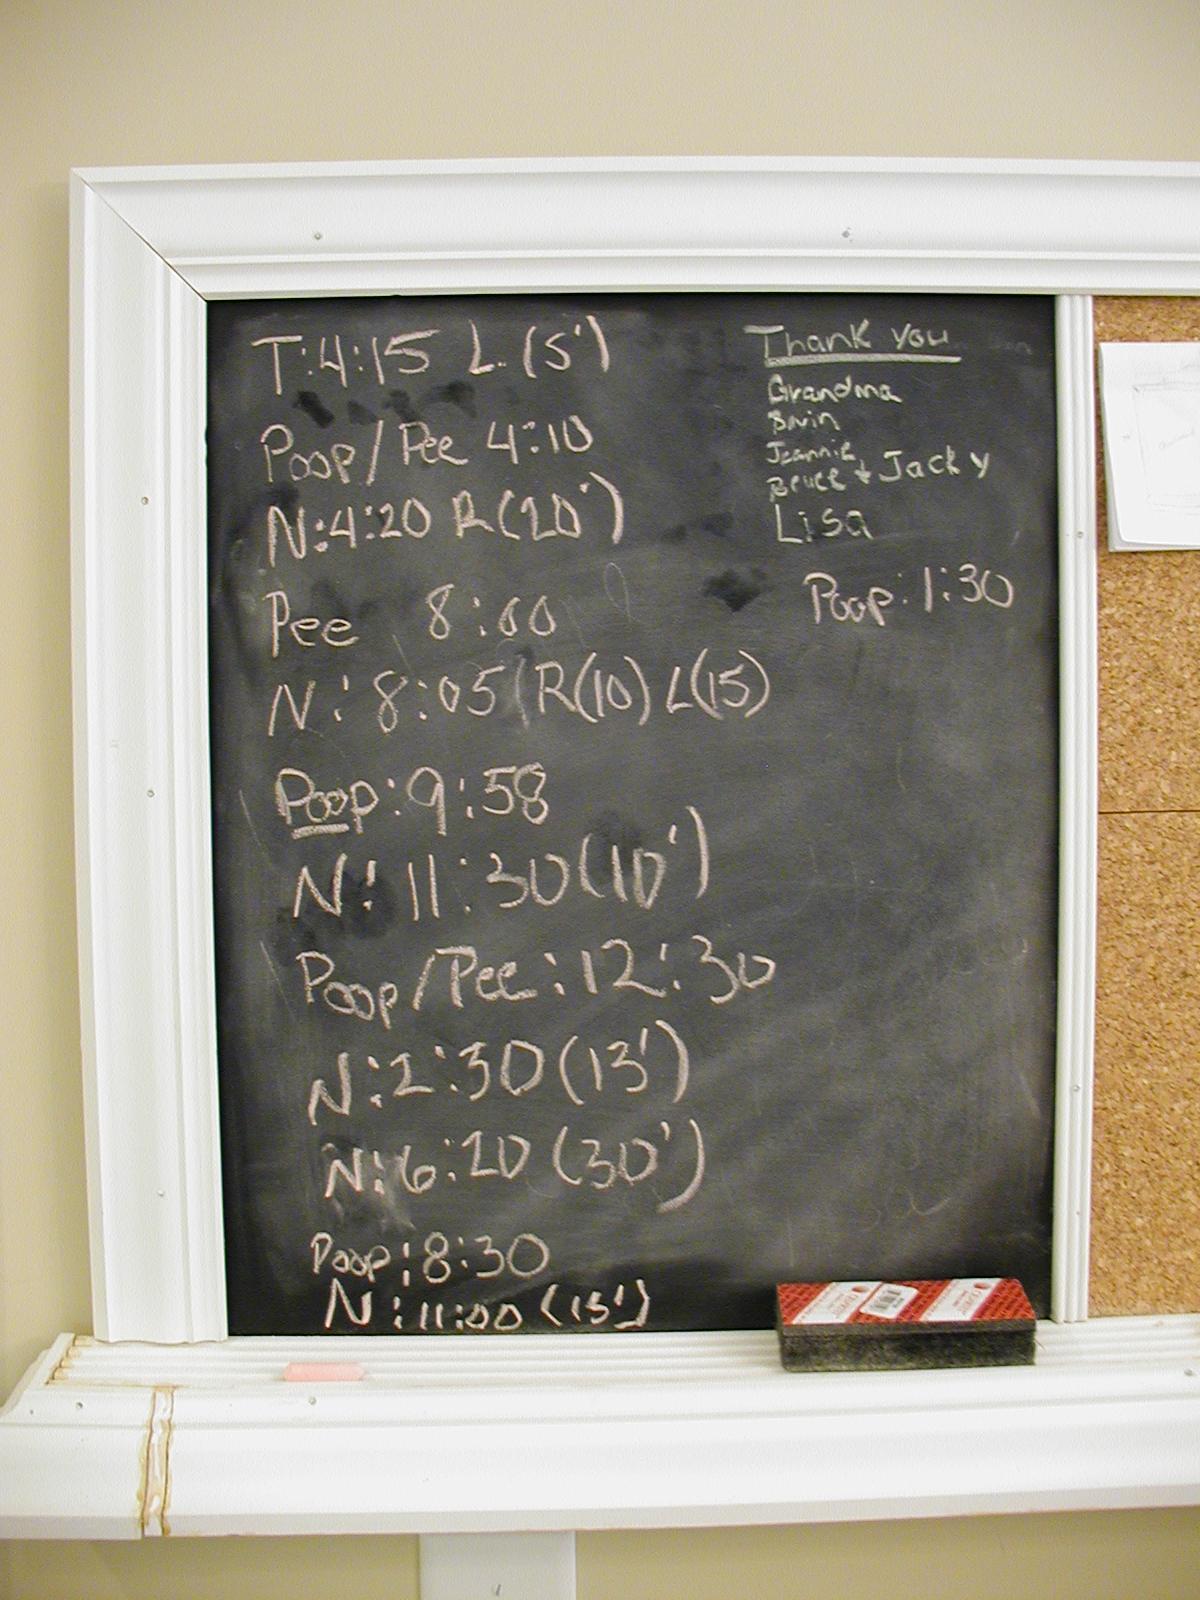 T:4:15 L. (5')
Poop/Pee 4:10
N:4:20 R(20')
Pee 8:00
N: 8:05 R(10) L(15)
Poop: 9:58
N: 11:30 (10')
Poop/Pee: 12:30
N: 2:30 (13')
N: 6:20 (30')
Poop: 8:30
N: 11:00 (15')
Thank you
Grandma
Jeannie
Bruce + Jacky
Lisa
Poop: 1:30